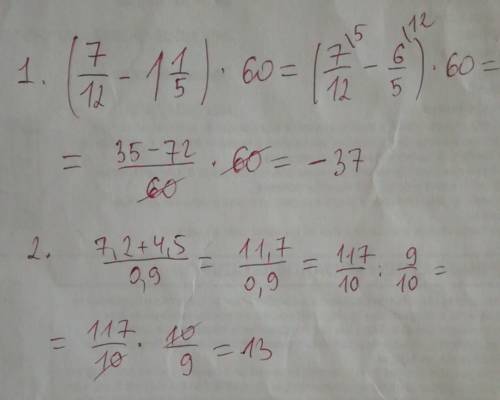 1. (7/12 - 1 1/5) · 60 = (7\5/12 - 6\12/5) · 60 =
= 35-72/60 · 60 = -37
2. 7,2+4,5/0,9 = 11,7/0,9 = 117/10 : 9/10 =
= 117/10 · 10/9 = 13